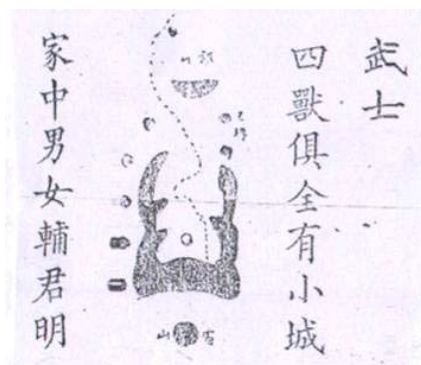 武士
四獸俱全有小城
家中男女輔君明